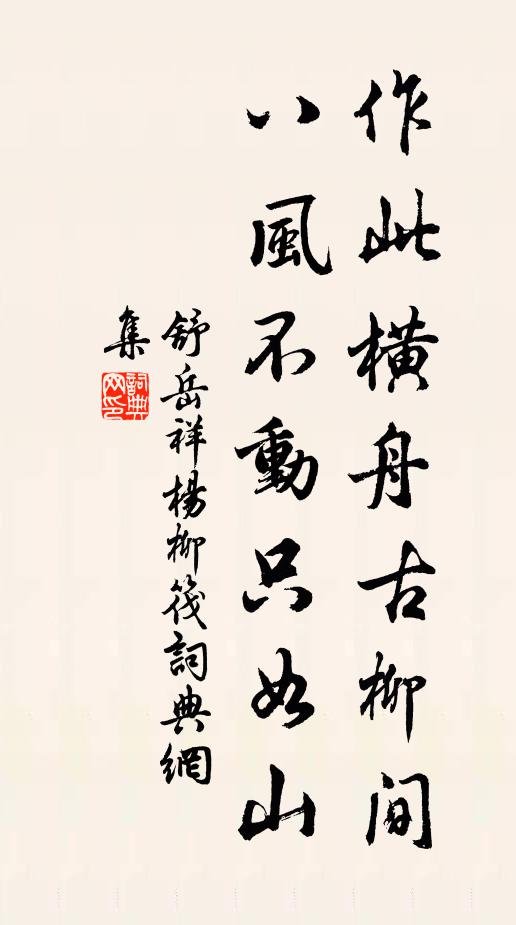 作此橫舟古柳間
八風不動只如山
舒岳祥楊柳筏詞典網
集
詞典网印